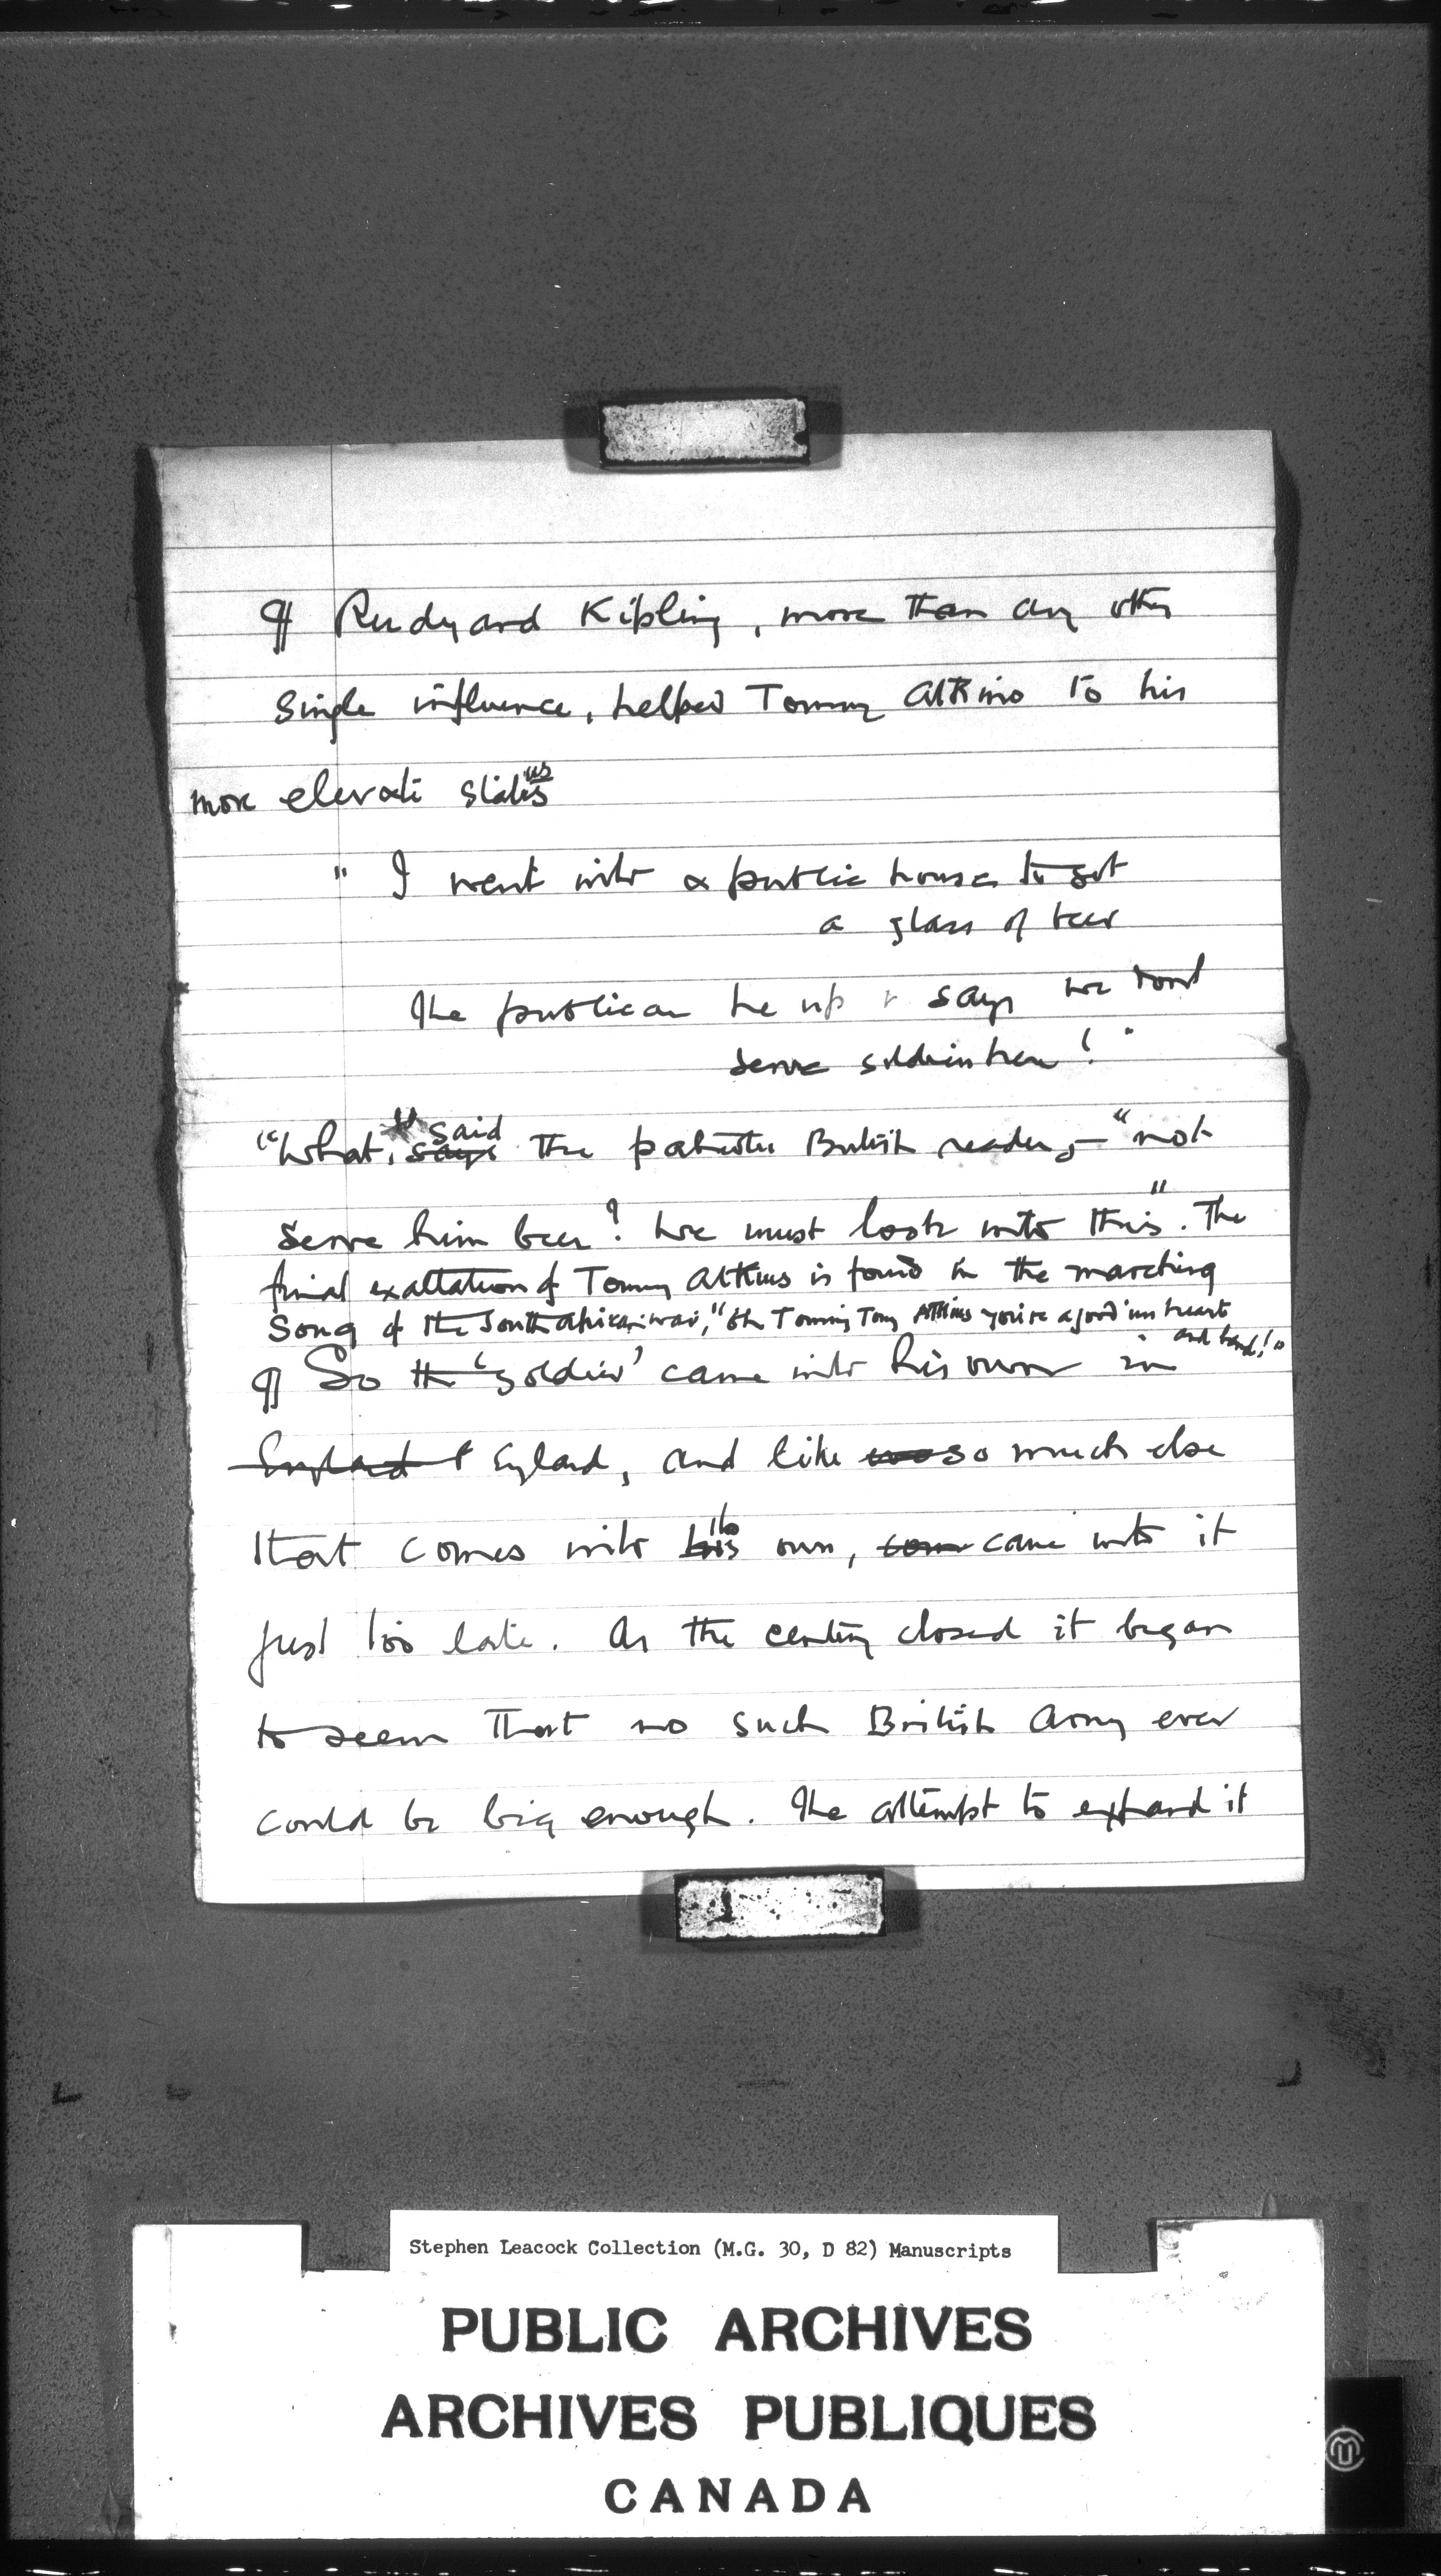 ¶ Rudyard Kipling, more than any other
single influence, helped Tommy Atkins to his
more elevate status
" I went into a public house to get
a glass of beer
The publican he up & says we don't
serve soldiers here! "
"What," said the patriotic British reader, – "not
serve him beer! We must look into this". The
final exaltation of Tommy Atkins is found in the marching
song of the South African war, "Oh Tommy Tommy Atkins you're a good 'un heart
and hand!"
¶ So the 'soldier' came into his own in
England England, and like so much else
that comes into its own, came into it
just too late. As the century closed it began
to seem that no such British Army ever
could be big enough. The attempt to expand it
Stephen Leacock Collection (M.G. 30, D 82) Manuscripts
PUBLIC ARCHIVES
ARCHIVES PUBLIQUES
CANADA